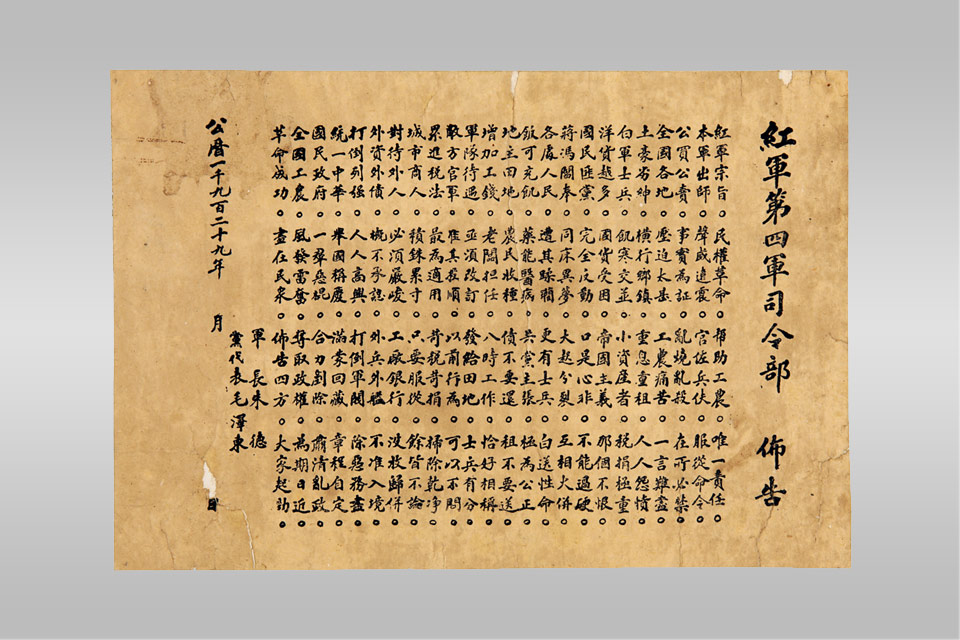 紅軍第四軍司令部 佈告
紅軍宗旨。民權革命。幫助工農。唯一責任。
本軍出師。聲威遠震。官佐兵伕。服從命令。
公買公賣。事實為証。亂燒亂殺。在所必禁。
全國各地。壓迫太甚。工農痛苦。一言難盡。
土豪劣紳。橫行鄉鎮。重息重租。人人怨憤。
白軍士兵。飢寒交並。小資產者。稅捐極重。
洋貨越多。國貨受困。帝國主義。那個不恨。
國民匪黨。完全反動。口是心非。不能過硬。
蔣馮閻奉。同床異夢。大起分裂。互相火併。
各處人民。遭其蹂躪。更有士兵。白送性命。
飯可充飢。藥能醫病。共黨主張。極為公正。
地主田地。農民收種。債不要還。租不要送。
增加工錢。老闆担任。八時工作。恰好相稱。
軍隊待遇。亟須改訂。發給田地。士兵有分。
敵方官軍。准其投順。以前行為。可以不問。
累進稅法。最為適用。苛稅苛捐。掃除乾净。
城市商人。積銖累寸。只要服從。餘皆不論。
對待外人。必須嚴峻。工廠銀行。沒收歸併。
外資外債。概不承認。外兵外艦。不准入境。
打倒列强。人人高興。打倒軍閥。除惡務盡。
統一中華。舉國稱慶。滿蒙回藏。章程自定。
國民政府。一羣惡棍。合力剷除。肅清亂政。
全國工農。風發雷奮。奪取政權。為期日近。
革命成功。盡在民衆。佈告四方。大家起動。
軍長朱德
黨代表毛澤東
公曆一千九百二十九年 月 日